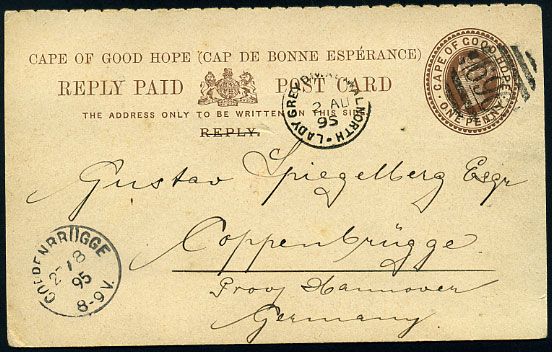 CAPE OF GOOD HOPE (CAP DE BONNE ESPÉRANCE)
REPLY PAID POST CARD
THE ADDRESS ONLY TO BE WRITTEN ON THIS SIDE
REPLY.
CAPE OF GOOD HOPE
ONE PENNY
LADY GREY NORTH
2 AU
95
Gustav Spiegelberg Esqr
Coppenbrügge.
Prov; Hannover
Germany
COPPENBRÜGGE
8
95
8-9V.